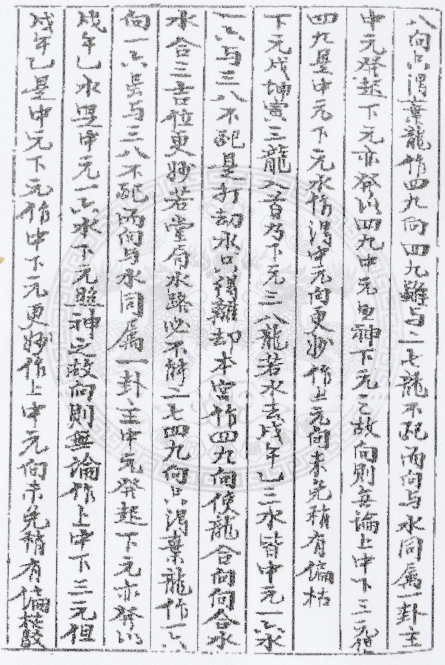 八向只得棄龍作四九向四九雖与一七龍不配而向与水同属一卦主
中元發起下元亦發以四九中元出神下元之故向則無論上中下三元但
四九是中元下元水作得中元向更妙作上元向未免稍有偏枯
下元戌坤震三龍入首乃下元三八龍若水去戌午乙三水皆中元一六水
一六与三八不配是打劫水只得離却本宮作四九向使龍合向向合水
水合三吉位更妙若堂局水路必不觧二七四九向只得棄龍作一六
向一六虽与三八不配而向与水同属一卦主中元發起下元亦發以
戌午乙水是中元一六水下元照神之故向則無論作上中下三元但
戌午乙是中元下元作中下元更妙作上中元向未免稍有偏枯